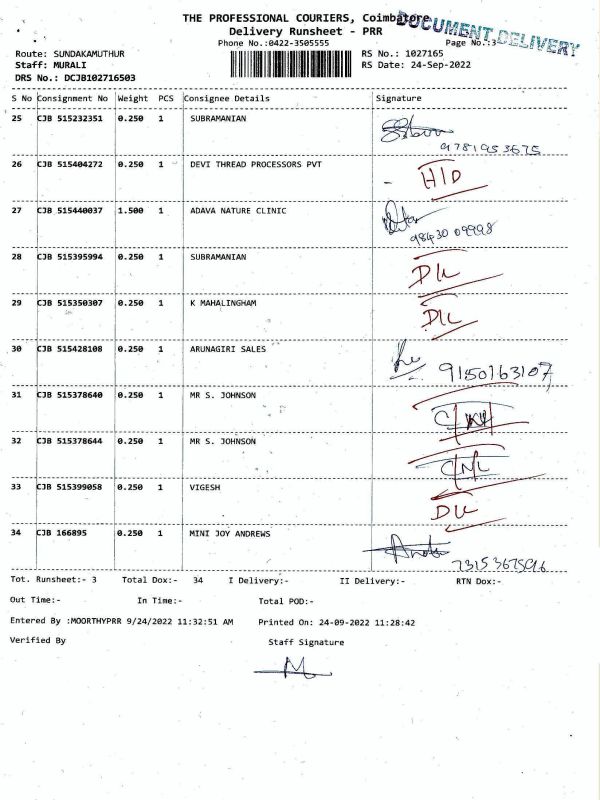 THE PROFESSIONAL COURIERS, Coimbatore
DOCUMENT DELIVERY
Delivery Runsheet - PRR
Phone No.:0422-3505555 Page No.:3
Route: SUNDAKAMUTHUR RS No.: 1027165
Staff: MURALI RS Date: 24-Sep-2022
DRS No.: DCJB102716503
S No Consignment No Weight PCS Consignee Details Signature
25 CJB 515232351 0.250 1 SUBRAMANIAN
9781953675
26 CJB 515404272 0.250 1 DEVI THREAD PROCESSORS PVT H/D
27 CJB 515440037 1.500 1 ADAVA NATURE CLINIC
98430 09998
28 CJB 515395994 0.250 1 SUBRAMANIAN DLL
29 CJB 515350307 0.250 1 K MAHALINGHAM DLL
30 CJB 515428108 0.250 1 ARUNAGIRI SALES
9150163107
31 CJB 515378640 0.250 1 MR S. JOHNSON
32 CJB 515378644 0.250 1 MR S. JOHNSON
33 CJB 515399058 0.250 1 VIGESH DLL
34 CJB 166895 0.250 1 MINI JOY ANDREWS
Tot. Runsheet:- 3 Total Dox:- 34 I Delivery:- II Delivery:- RTN Dox:-
Out Time:- In Time:- Total POD:-
Entered By :MOORTHYPRR 9/24/2022 11:32:51 AM Printed On: 24-09-2022 11:28:42
Verified By Staff Signature
M